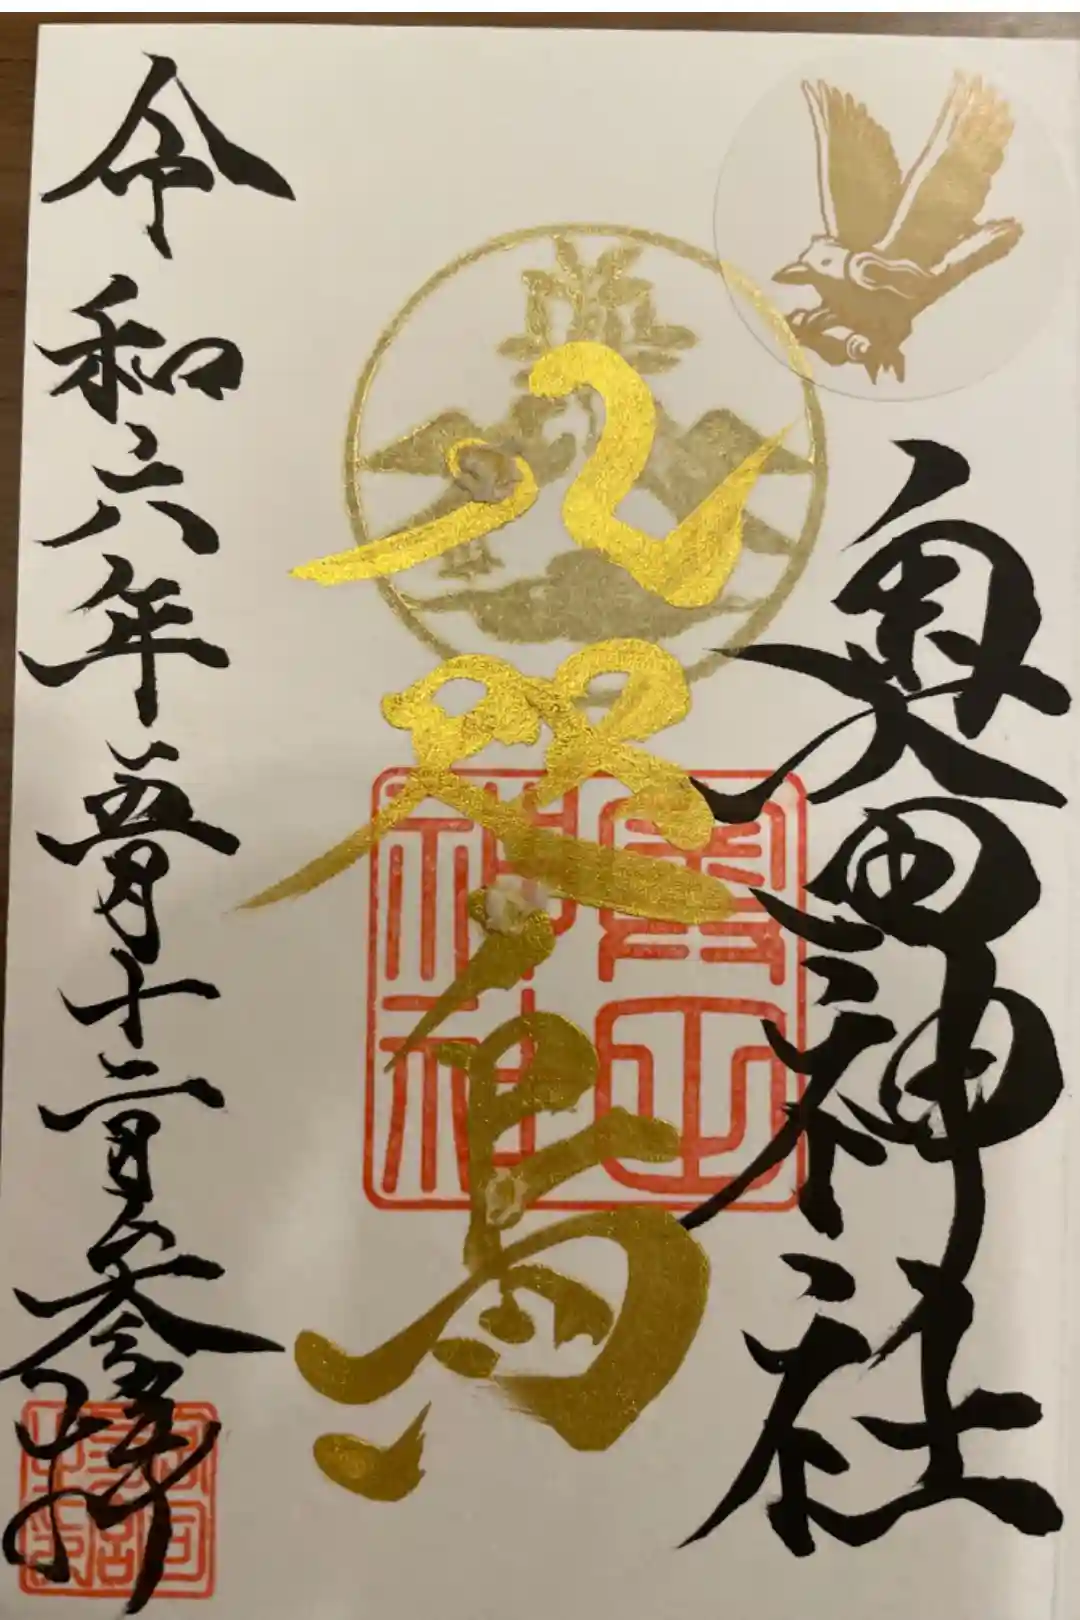 奥田神社
八咫烏
令和六年五月十二日参拝